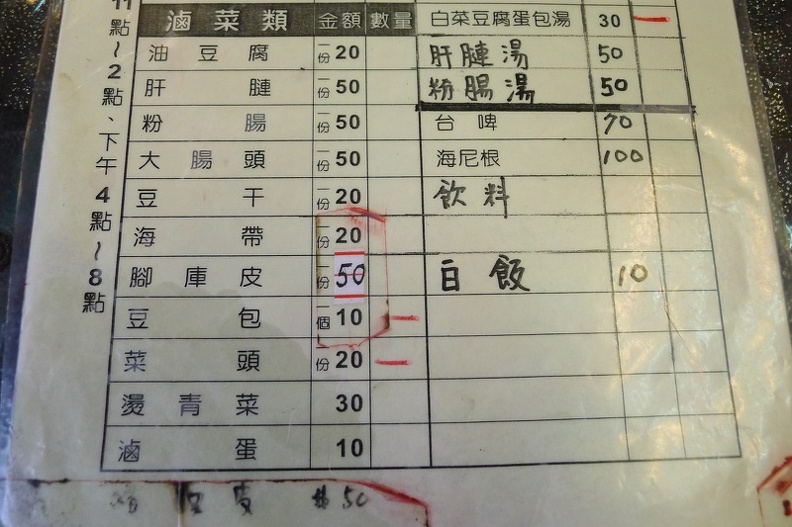 11點~2點、下午4點~8點
滷菜類 金額 數量
油豆腐 一份20
肝腱 一份50
粉腸 一份50
大腸頭 一份50
豆干 一份20
海帶 一份20
腳庫皮 一份50
豆包 一個10
菜頭 一份20
燙青菜 30
滷蛋 10
白菜豆腐蛋包湯 30
肝腱湯 50
粉腸湯 50
台啤 70
海尼根 100
飲料
白飯 10
50